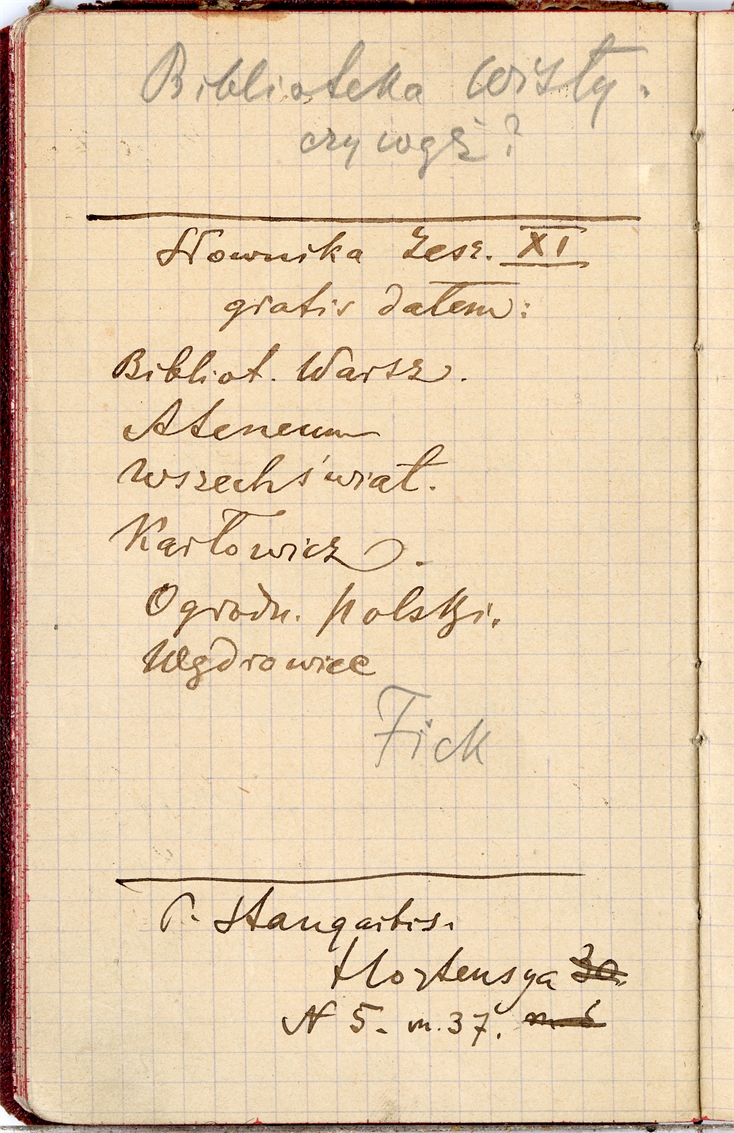 Biblioteka Wisły.
czy wyż?
Słownika Zesz. XI
gratis dałem:
Bibliot. Warsz.
Ateneum
Wszechświat.
Karłowicz.
Ogrodn. polski.
Wędrowiec
Fick
P. Stangaitis.
Hortensya 30.
N 5. m. 37. m 6